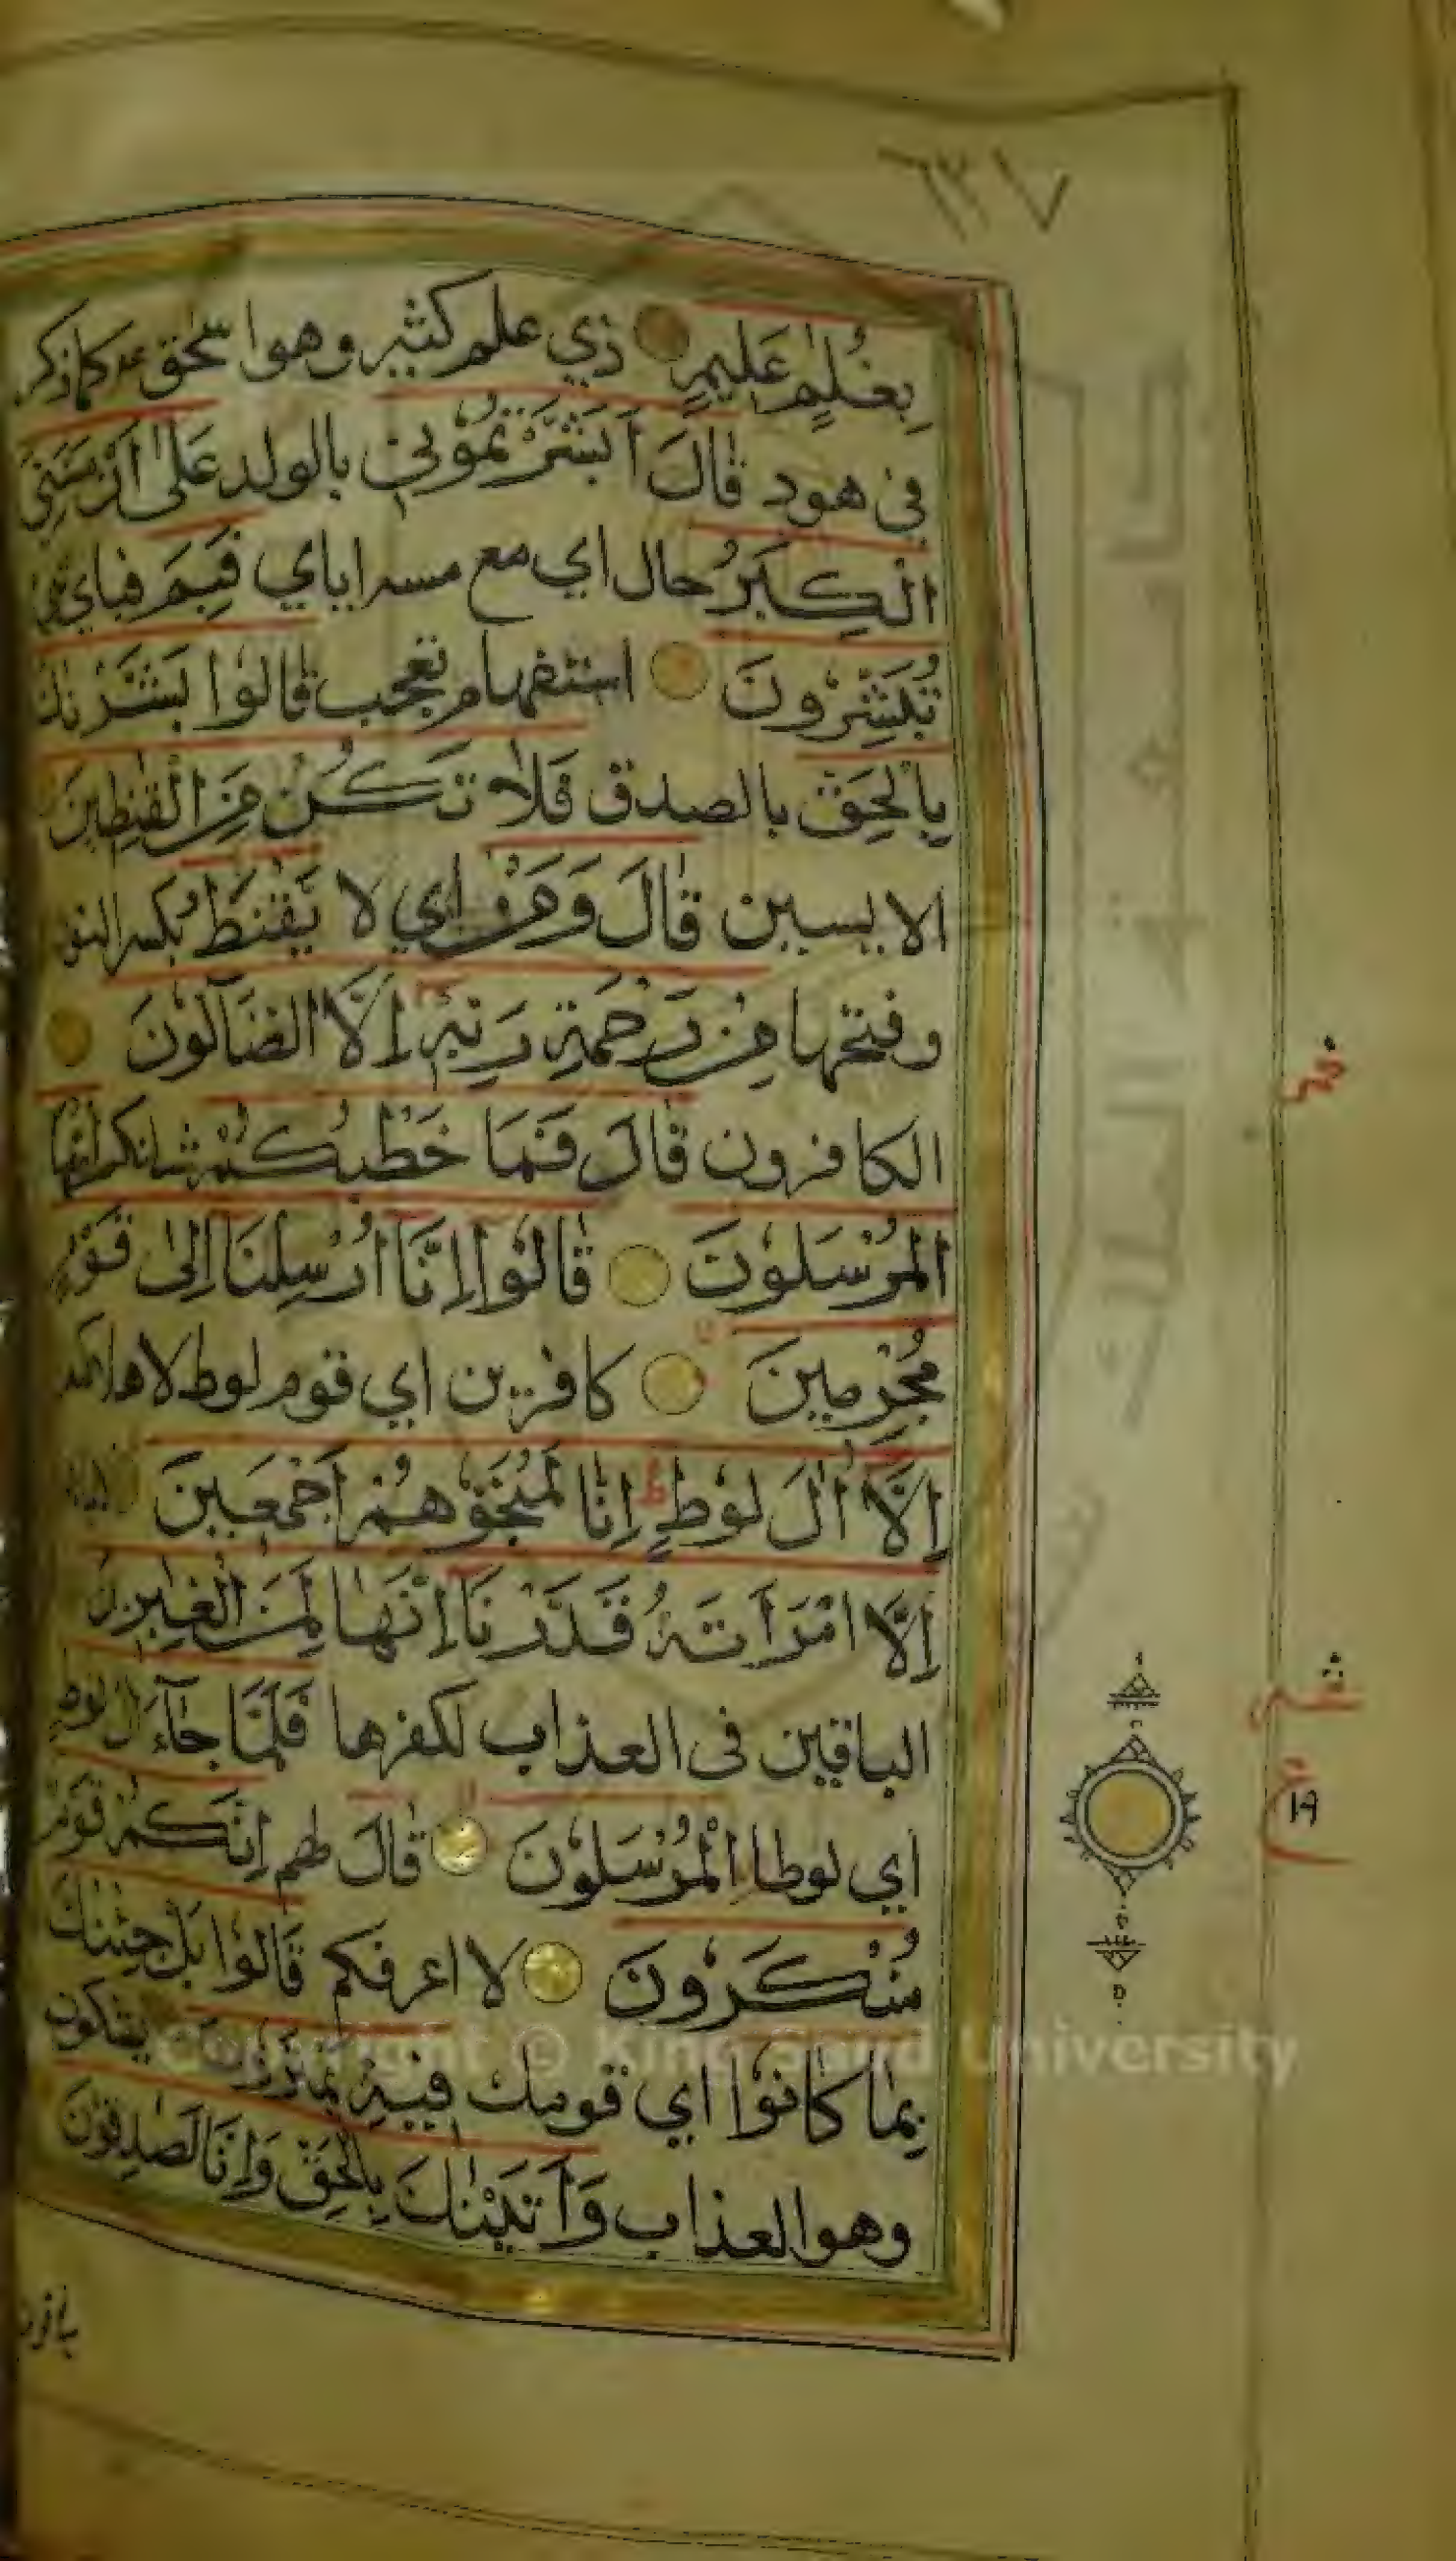 ٦٣١٧
بِغُلٰمٍ عَلِيْمٍ ذي علم كثير وهو اسحق كما ذكر
في هود قَالَ اَبَشَّرْتُمُوْنِيْ بالولد عَلٰٓى اَنْ مَّسَّنِيَ
الْكِبَرُ حال اي مع مسه اياي فَبِمَ فباي
تُبَشِّرُوْنَ استفهام تعجب قَالُوْا بَشَّرْنٰكَ
بِالْحَقِّ بالصدق فَلَا تَكُنْ مِّنَ الْقٰنِطِيْنَ
الايسين قَالَ وَمَنْ اي لا يَّقْنَطُ بكسر النون
وفتحها مِنْ رَّحْمَةِ رَبِّهٖٓ اِلَّا الضَّآلُّوْنَ
الكافرون قَالَ فَمَا خَطْبُكُمْ شانكم اَيُّهَا
الْمُرْسَلُوْنَ قَالُوْٓا اِنَّآ اُرْسِلْنَآ اِلٰى قَوْمٍ
مُّجْرِمِيْنَ كافرين اي قوم لوط لاهلاكهم
اِلَّآ اٰلَ لُوْطٍ ط اِنَّا لَمُنَجُّوْهُمْ اَجْمَعِيْنَ
اِلَّا امْرَاَتَهٗ قَدَّرْنَآ اِنَّهَا لَمِنَ الْغٰبِرِيْنَ
الباقين في العذاب لكفرها فَلَمَّا جَآءَ اٰلَ لُوْطِ
اي لوطا الْمُرْسَلُوْنَ قَالَ لهم اِنَّكُمْ قَوْمٌ
مُّنْكَرُوْنَ لا اعرفكم قَالُوْا بَلْ جِئْنٰكَ
بِمَا كَانُوْا اي قومك فِيْهِ يَمْتَرُوْنَ يشكون
وهو العذاب وَاَتَيْنٰكَ بِالْحَقِّ وَاِنَّا لَصٰدِقُوْنَ
١٩
Copyright © King Saud University